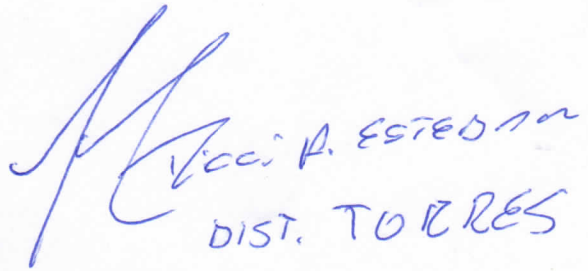 Ricci A. ESTEBAN
DIST. TORRES